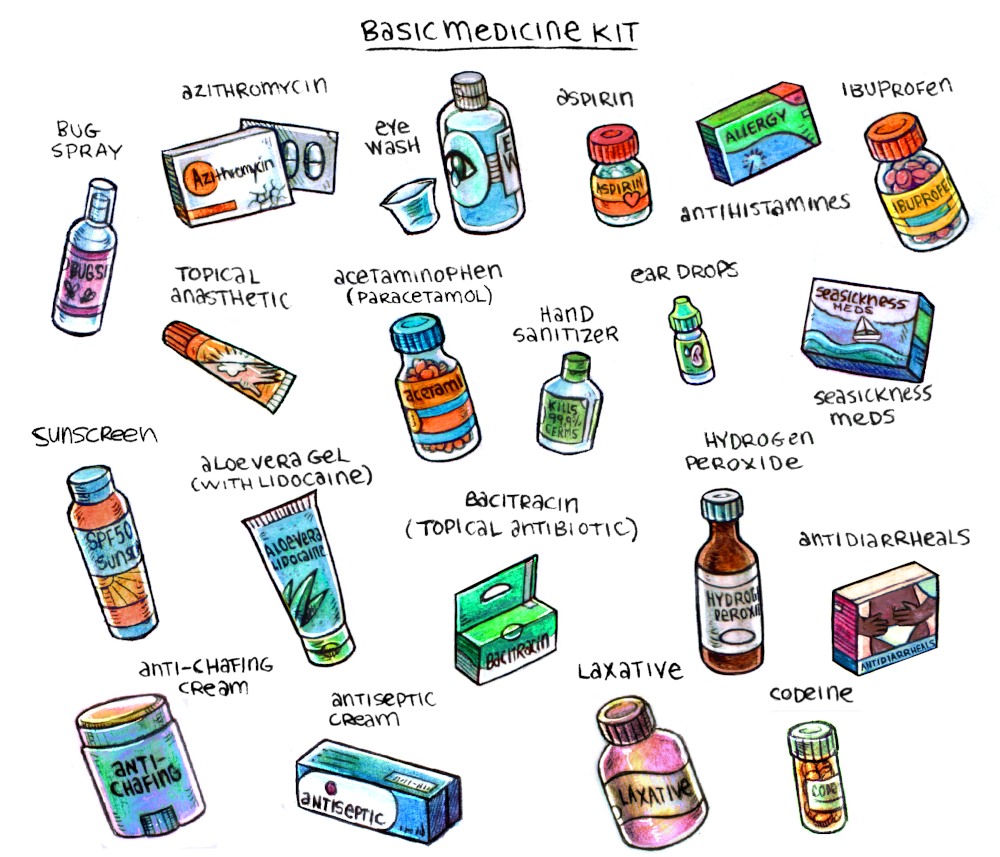 BASIC MEDICINE KIT
BUG
SPRAY
BUGS!
AZITHROMYCIN
Azithromycin
EYE
WASH
E
W
ASPIRIN
ASPIRIN
ALLERGY
ANTIHISTAMINES
IBUPROFEN
IBUPROFEN
TOPICAL
ANASTHETIC
ACETAMINOPHEN
(PARACETAMOL)
acetami
HAND
SANITIZER
KILLS
99.9%
GERMS
EAR DROPS
SEASICKNESS
MEDS
SEASICKNESS
MEDS
SUNSCREEN
SPF50
SUNSC
ALOE VERA GEL
(WITH LIDOCAINE)
ALOEVERA
LIDOCAINE
BACITRACIN
(TOPICAL ANTIBIOTIC)
BACITRACIN
HYDROGEN
PEROXIDE
HYDROG
PEROXID
ANTIDIARRHEALS
ANTIDIARRHEALS
ANTI-CHAFING
CREAM
ANTI-
CHAFING
ANTISEPTIC
CREAM
ANTISEPTIC
LAXATIVE
LAXATIVE
CODEINE
CODE